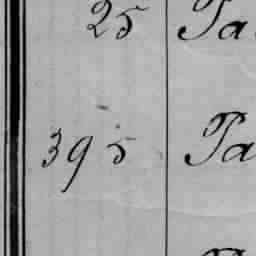 25 Pa
395 Pa